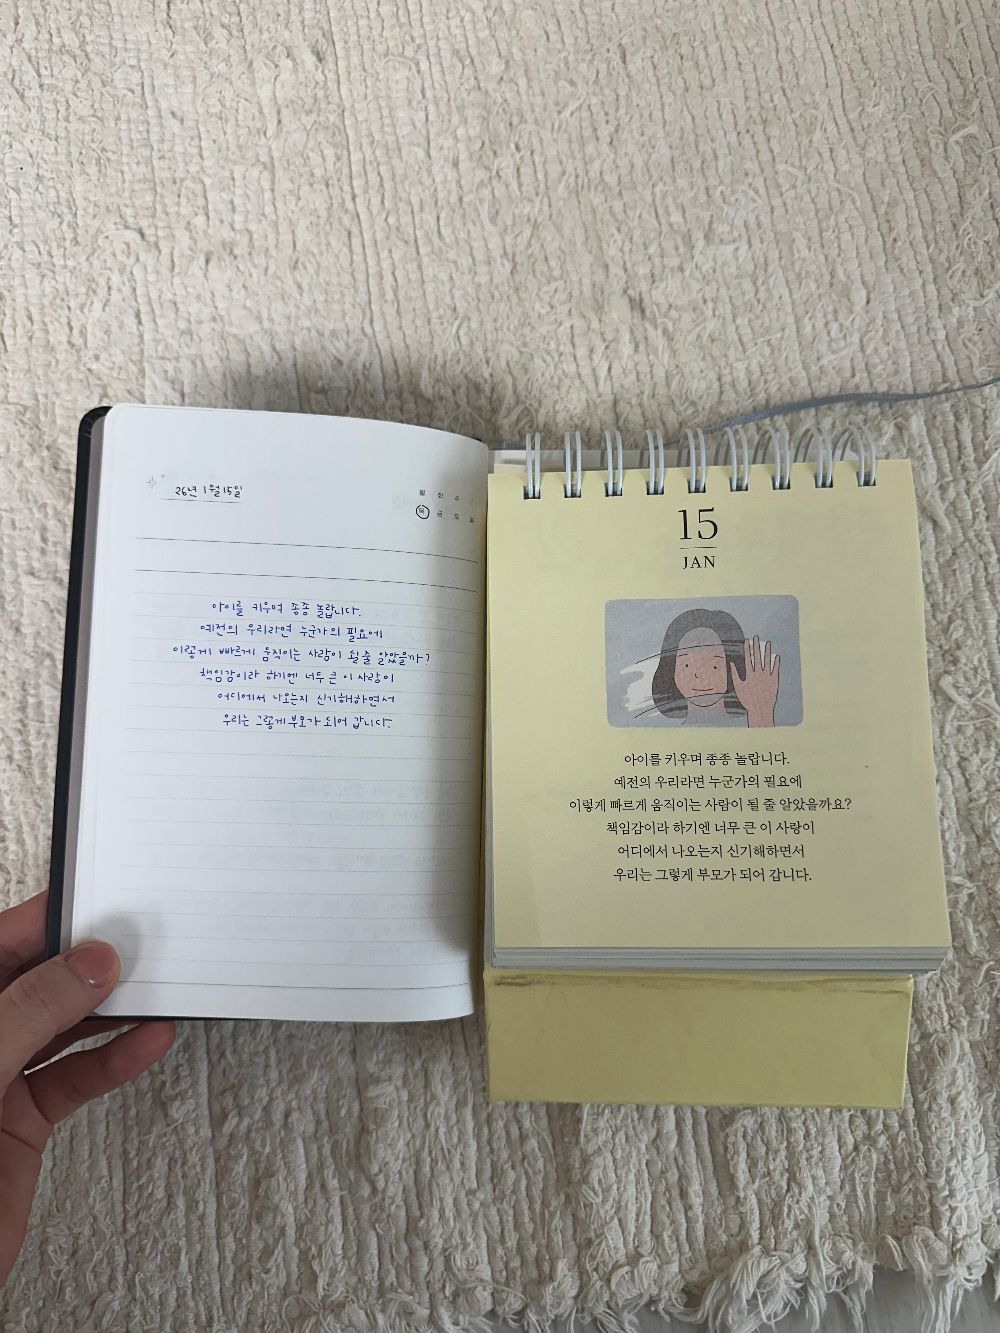 26년 1월 15일
월 화 수
목 금 토 일
아이를 키우며 종종 놀랍니다.
예전의 우리라면 누군가의 필요에
이렇게 빠르게 움직이는 사람이 될 줄 알았을까?
책임감이라 하기엔 너무 큰 이 사랑이
어디에서 나오는지 신기해하면서
우리는 그렇게 부모가 되어 갑니다.
15
JAN
아이를 키우며 종종 놀랍니다.
예전의 우리라면 누군가의 필요에
이렇게 빠르게 움직이는 사람이 될 줄 알았을까요?
책임감이라 하기엔 너무 큰 이 사랑이
어디에서 나오는지 신기해하면서
우리는 그렇게 부모가 되어 갑니다.